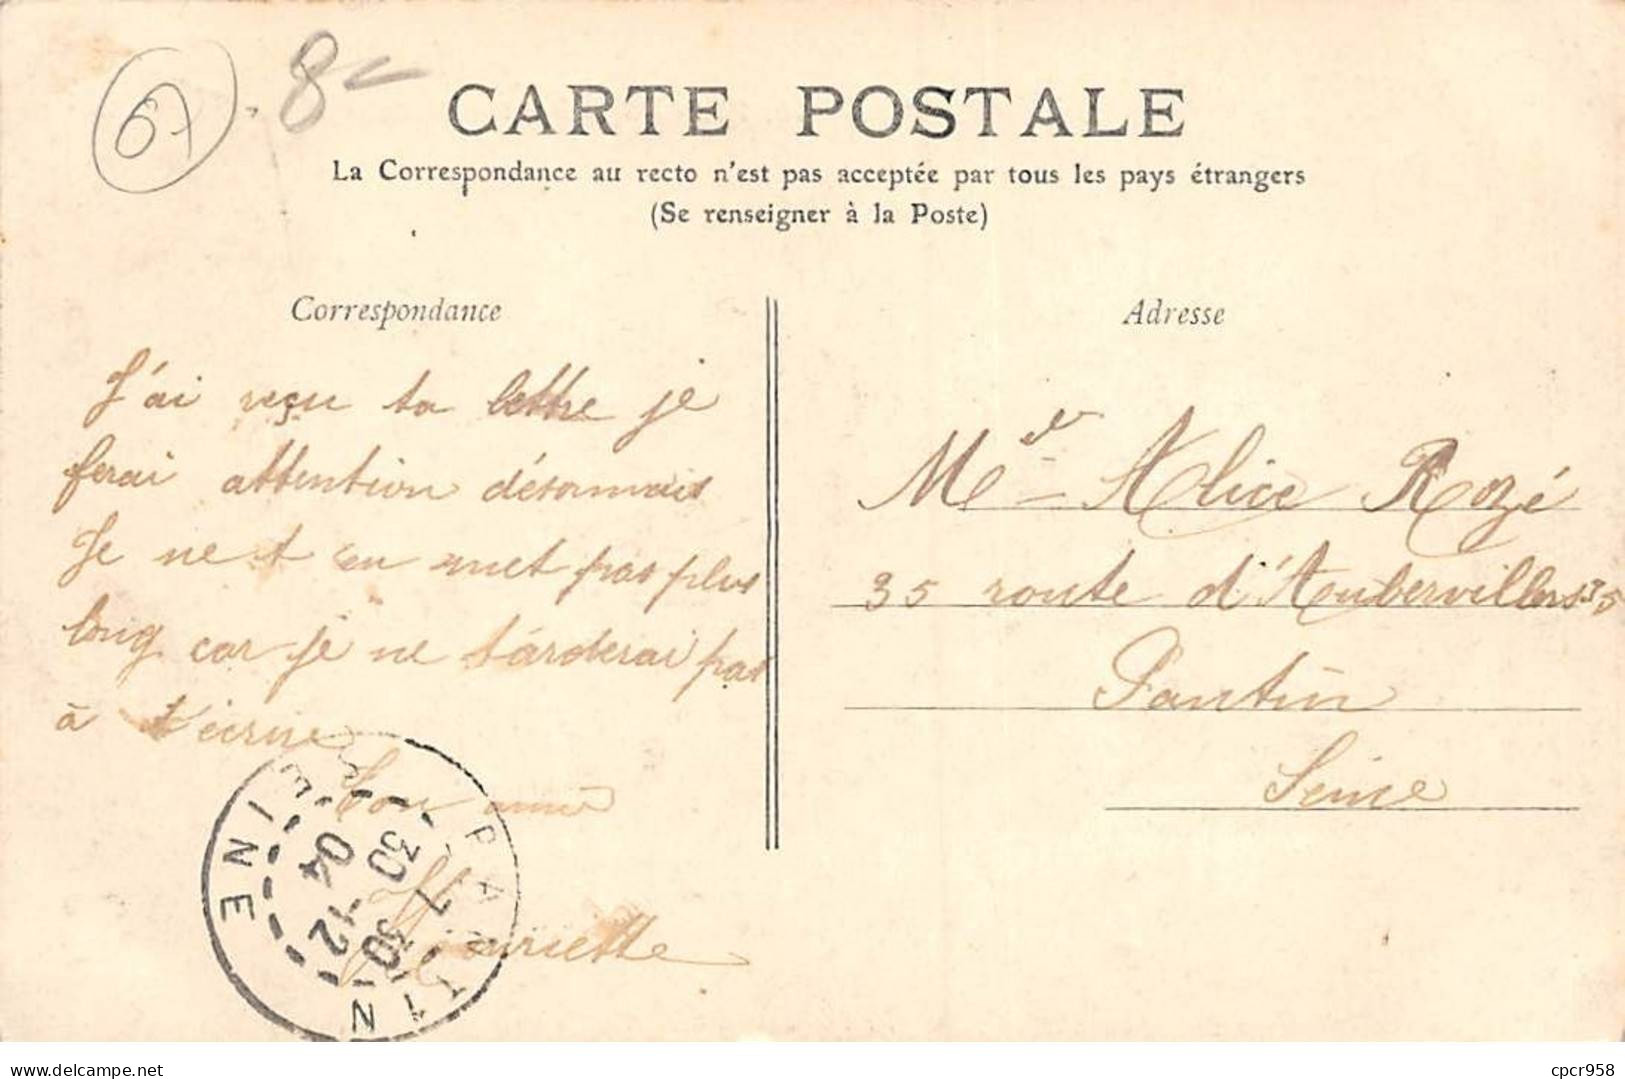 67 8
CARTE POSTALE
La Correspondance au recto n'est pas acceptée par tous les pays étrangers
(Se renseigner à la Poste)
Correspondance
J'ai reçu ta lettre je
ferai attention désormais
Je ne t'en met pas plus
long car je ne tarderai pas
à t'écrire
Ton amie
Henriette
Adresse
Melle Alice Rozé
35 route d'Aubervilliers 35
Pantin
Seine
PANTIN
SEINE
7 30
30 -12
04
delcampe.net
cpcr958